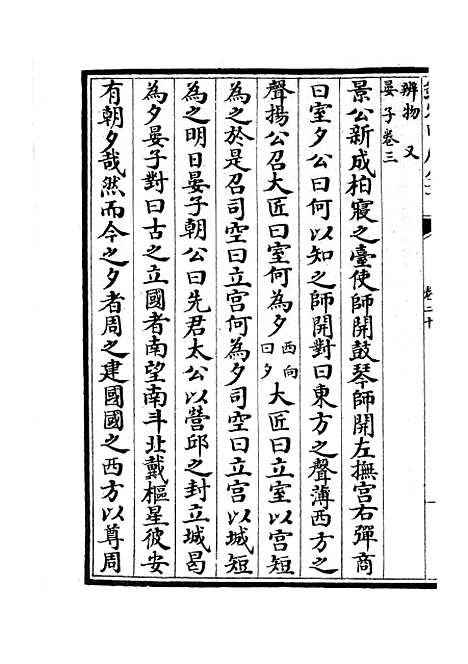 卷二十
辨物 又
晏子卷三
景公新成柏寢之臺使師開鼓琴師開左撫宮右彈商
曰室夕公曰何以知之師開對曰東方之聲薄西方之
聲揚公召大匠曰室何為夕西向曰夕大匠曰立室以宮短
為之於是召司空曰立宮何為夕司空曰立宮以城短
為之明日晏子朝公曰先君太公以營邱之封立城曷
為夕晏子對曰古之立國者南望南斗北戴樞星彼安
有朝夕哉然而今之夕者周之建國國之西方以尊周